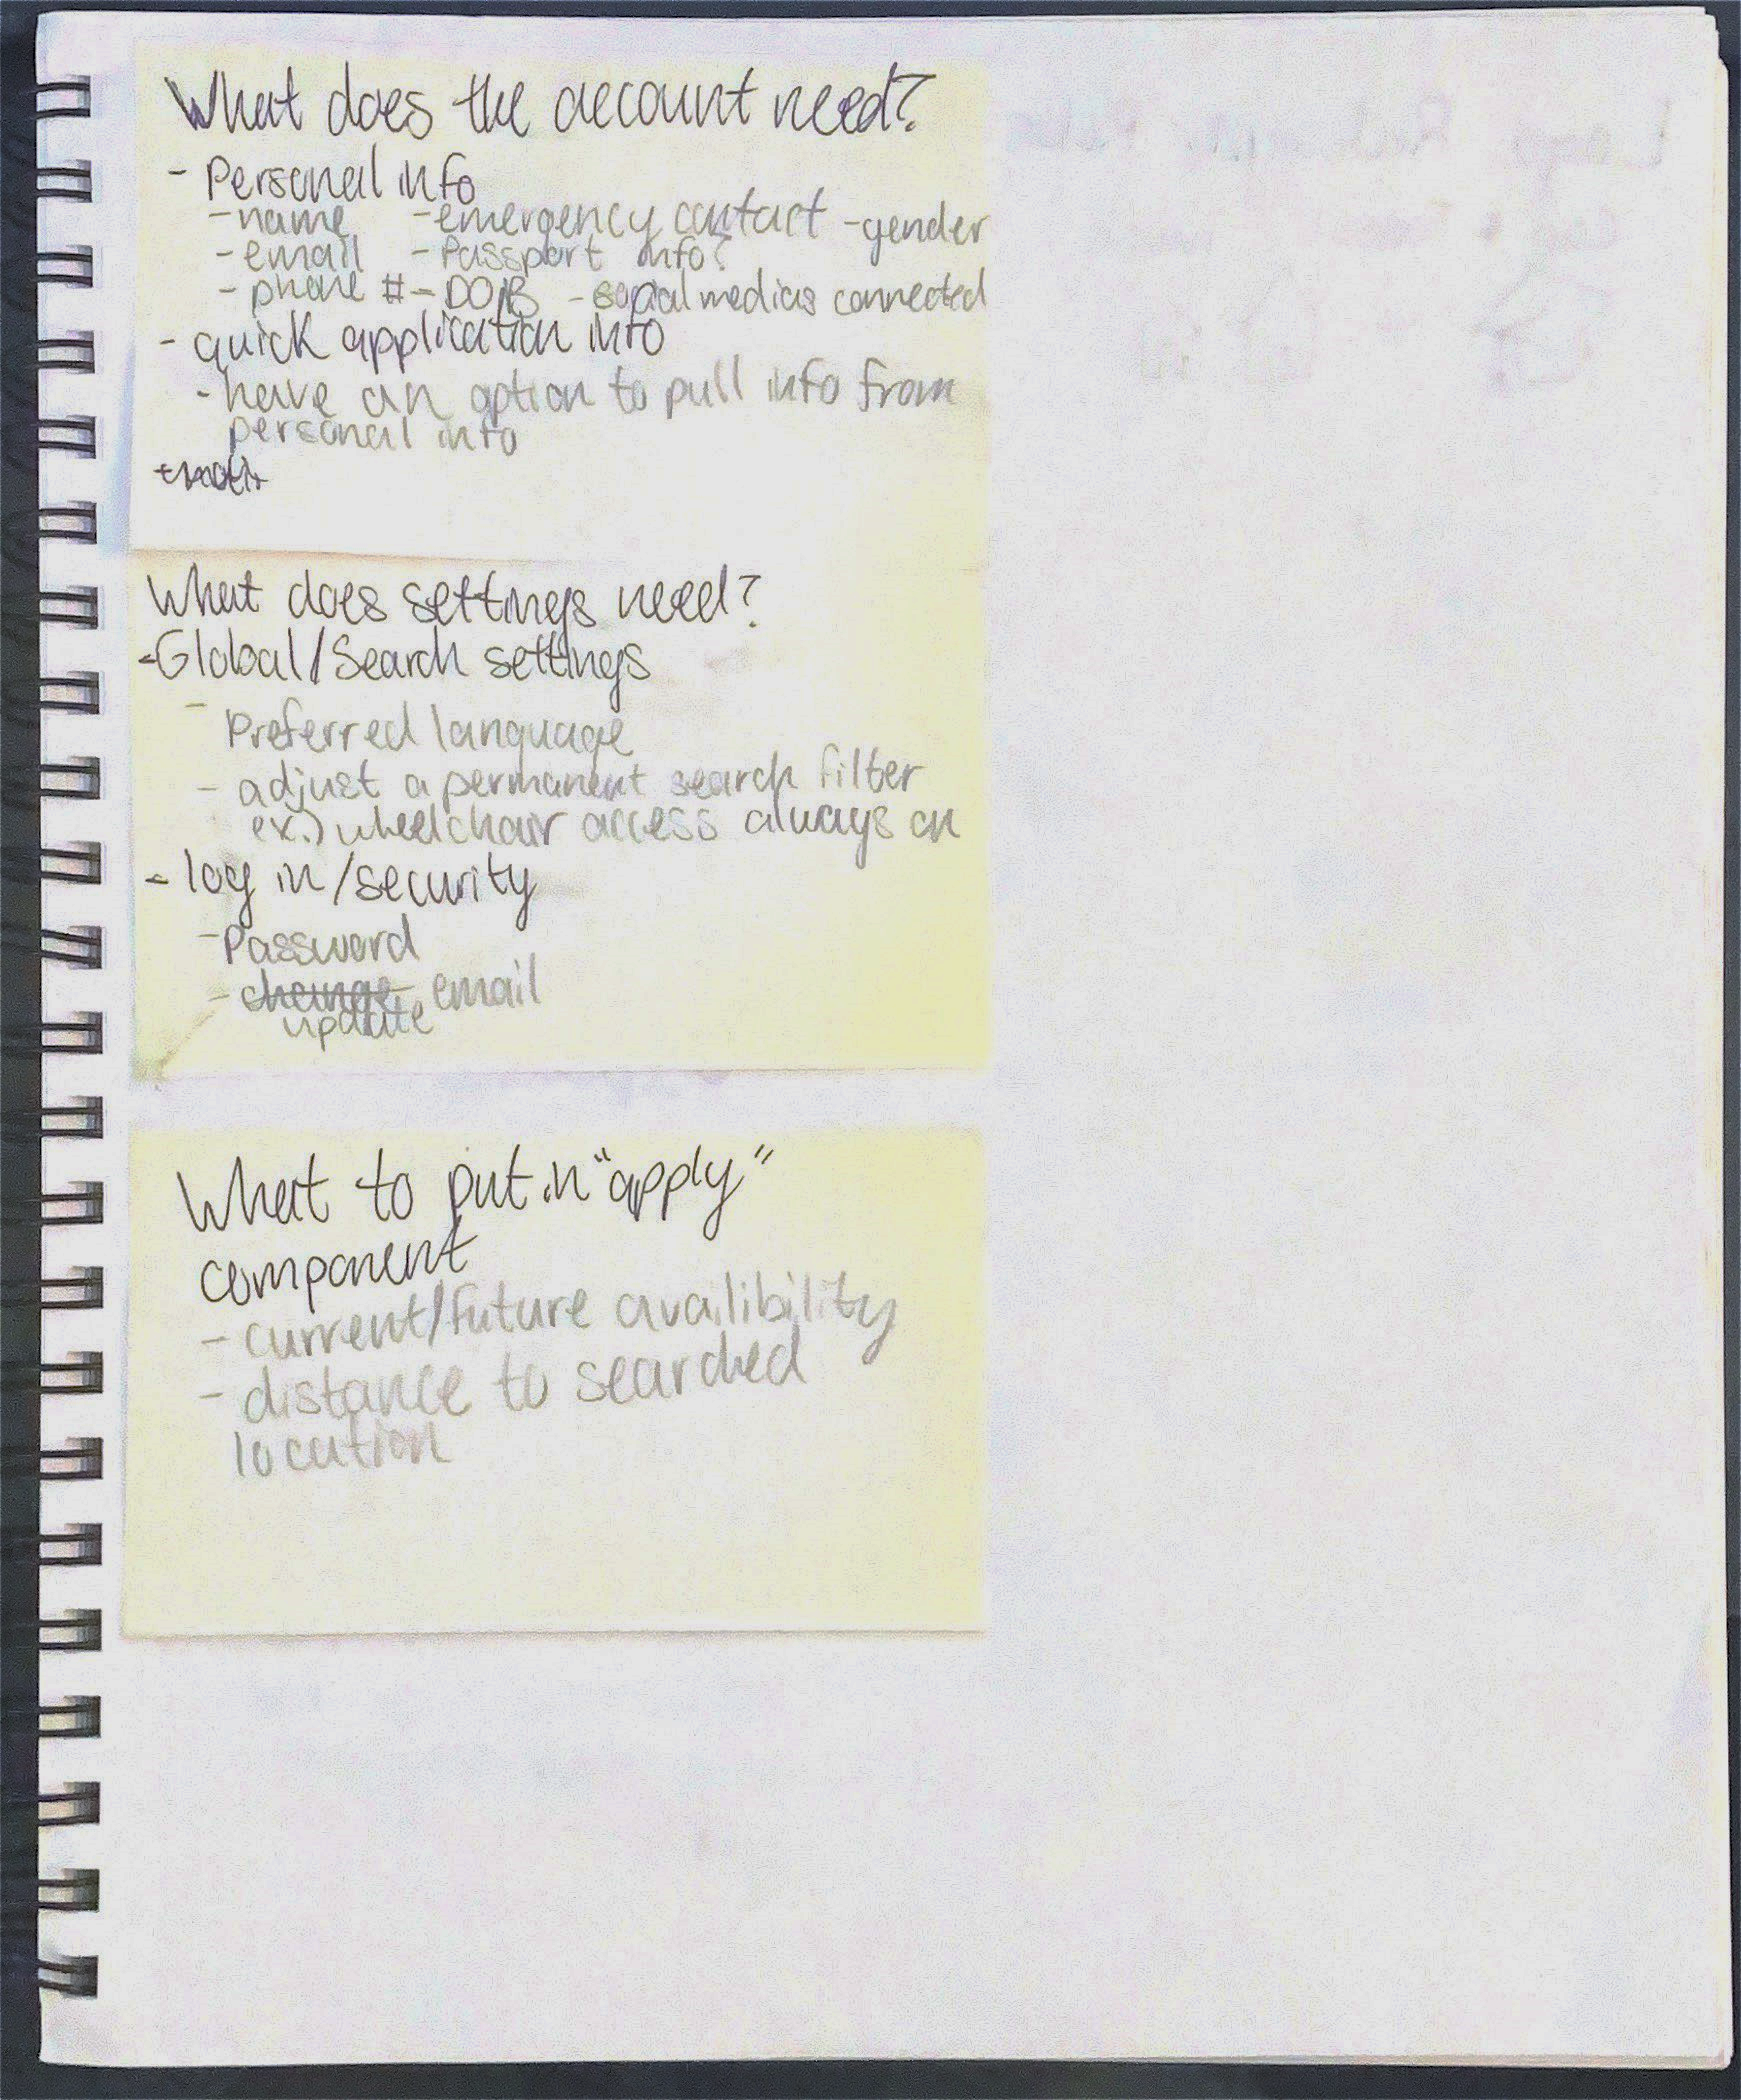 What does the account need?
- Personal info
- name - emergency contact - gender
- email - Passport info?
- phone # - DOB - social medias connected
- quick application info
- have an option to pull info from
personal info
What does settings need?
- Global/Search settings
- Preferred language
- adjust a permanent search filter
ex.) wheelchair access always on
- log in/security
- Password
- change email
update
What to put in "apply"
component
- current/future availibility
- distance to searched
location